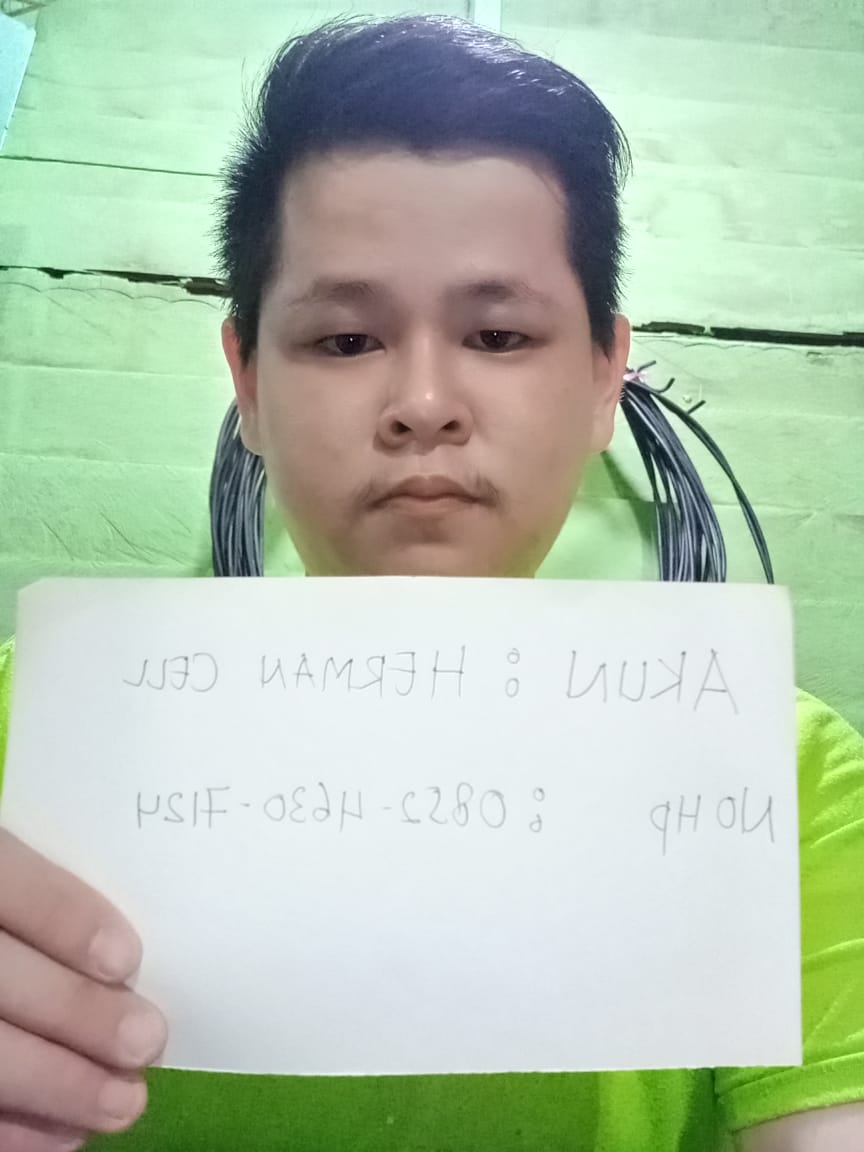 AKUN : HERMAN CELL
NO HP : 0852-4630-7124